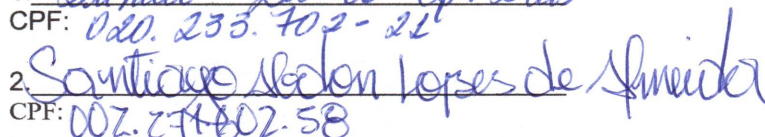 CPF: 020.233.702-21
2. Santiago Abdon Lopes de Almeida
CPF: 002.271.802.58